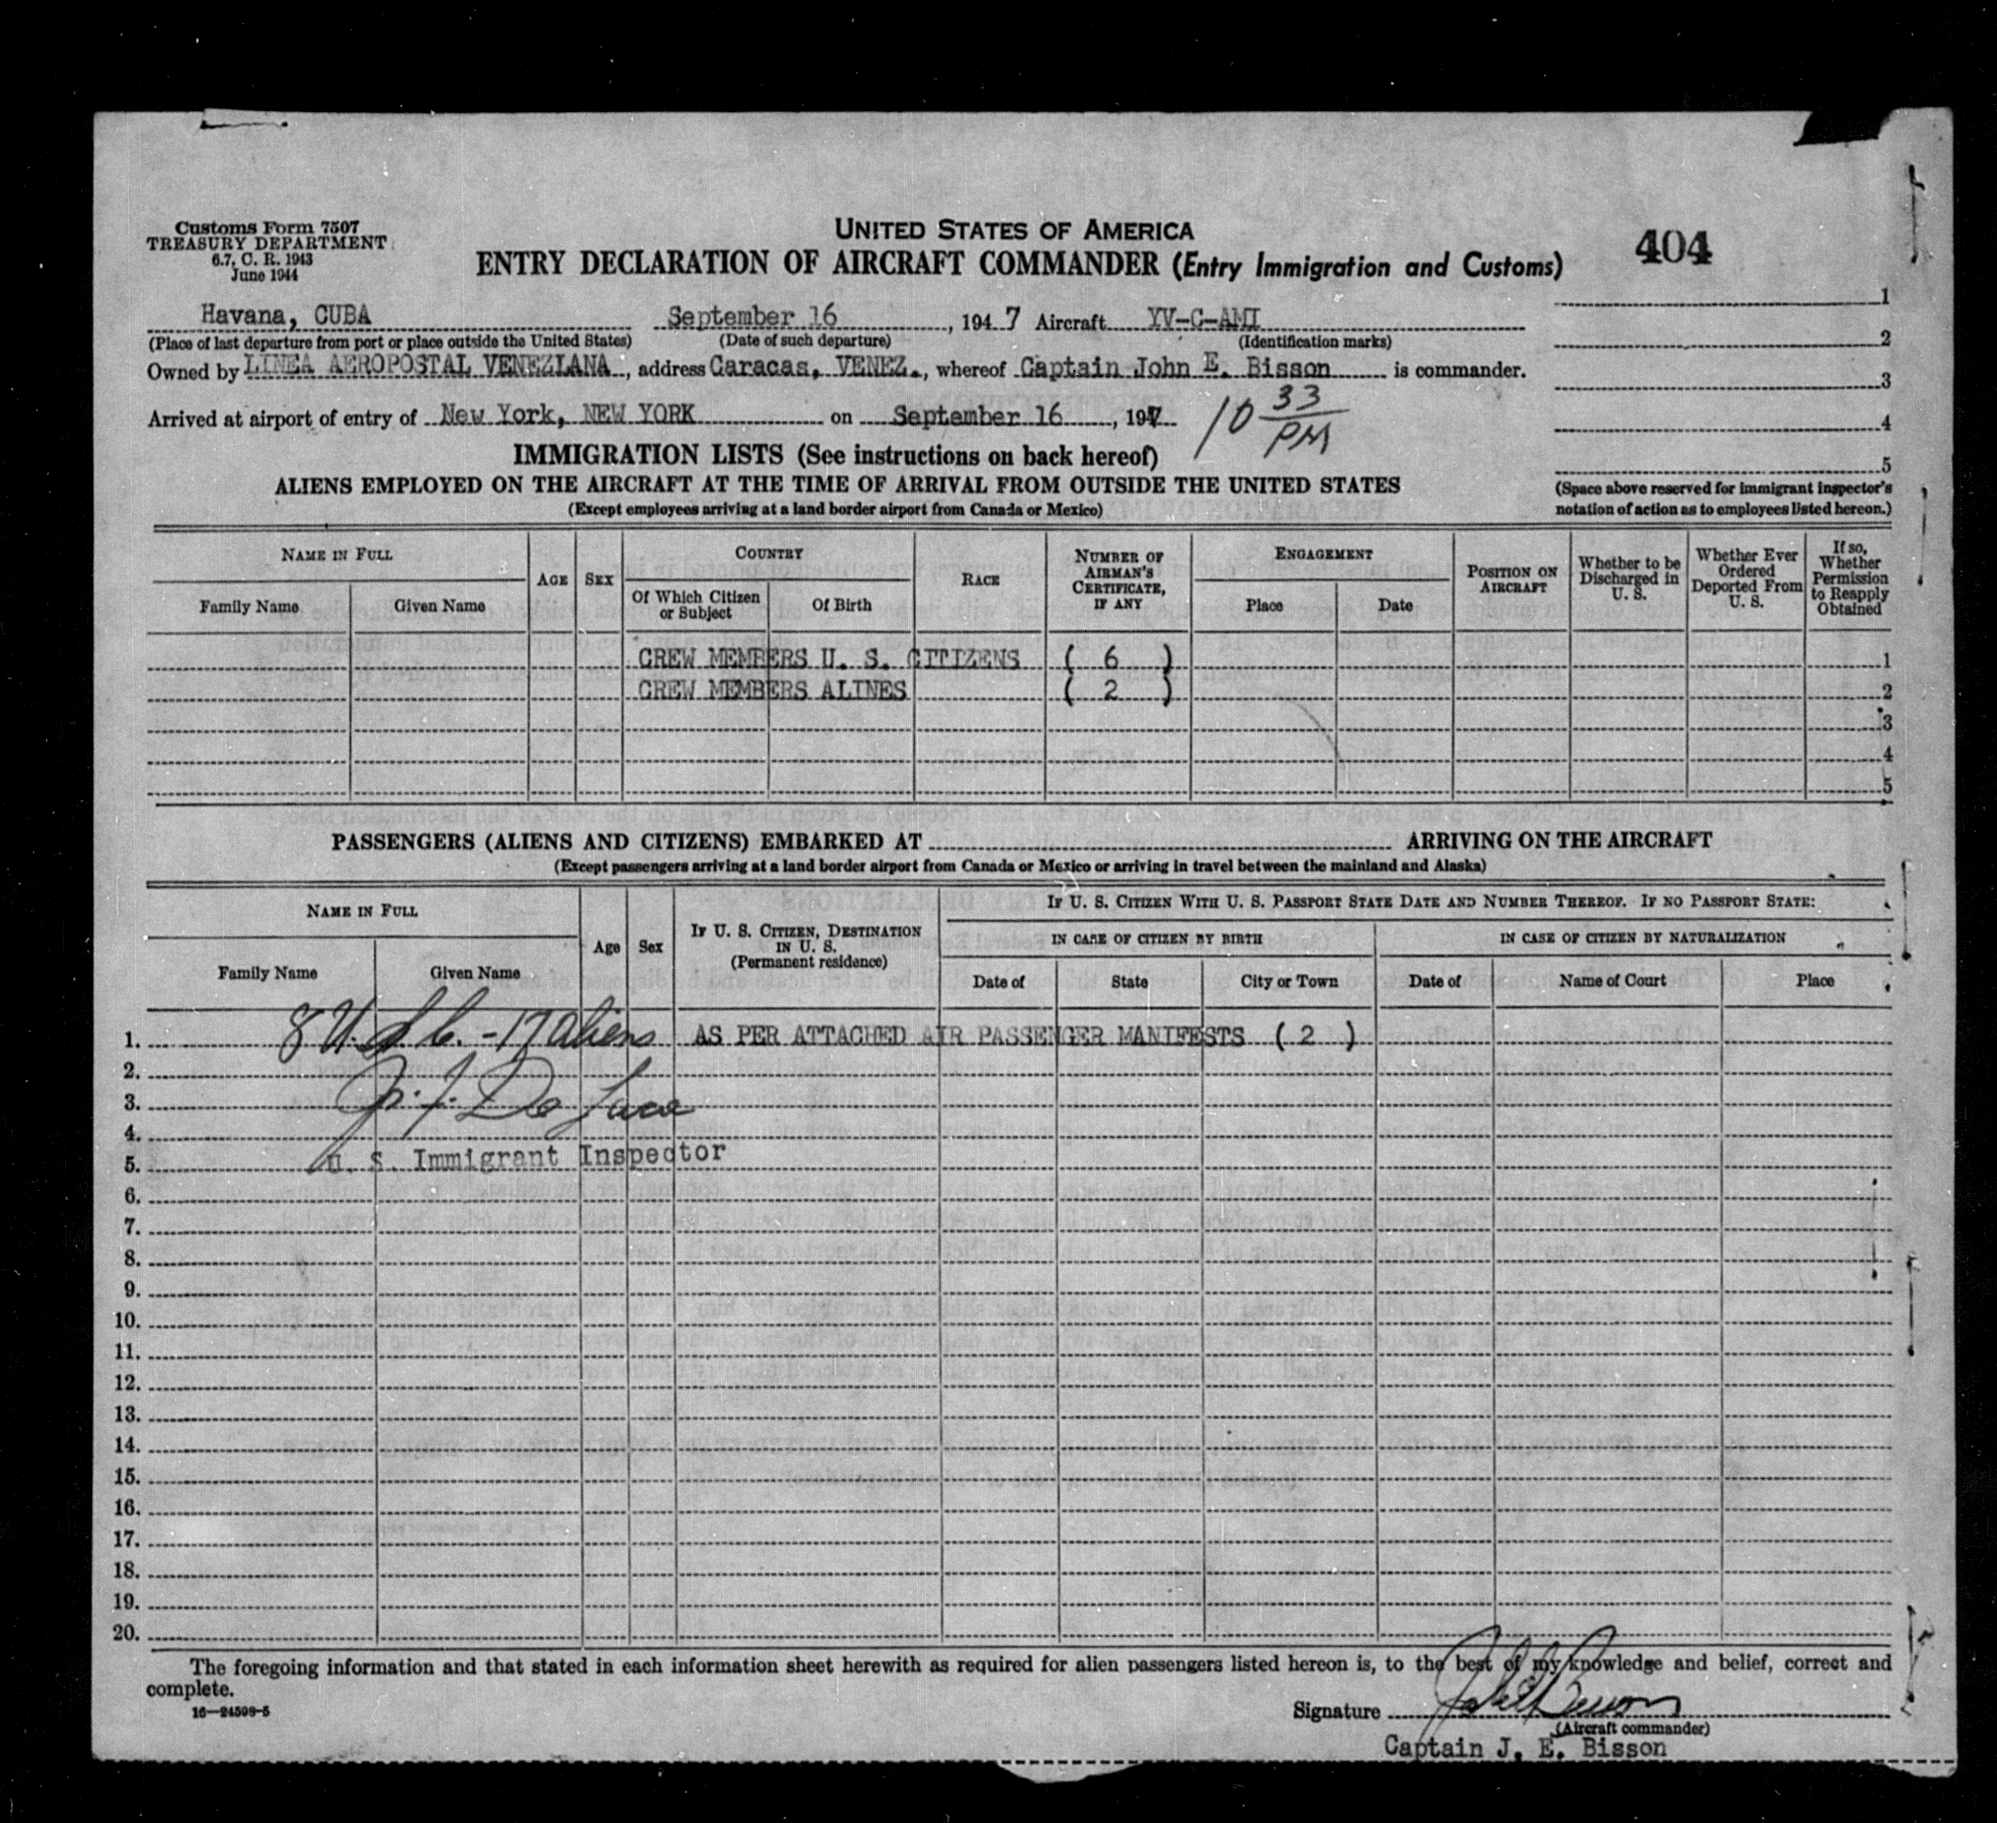 Customs Form 7507
TREASURY DEPARTMENT
6.7, C. R. 1943
June 1944
UNITED STATES OF AMERICA
ENTRY DECLARATION OF AIRCRAFT COMMANDER (Entry Immigration and Customs)
404
Havana, CUBA September 16, 1947 Aircraft YV-C-AMI
(Place of last departure from port or place outside the United States) (Date of such departure) (Identification marks)
Owned by LINEA AEROPOSTAL VENEZLANA, address Caracas, VENEZ., whereof Captain John E. Bisson is commander.
Arrived at airport of entry of New York, NEW YORK on September 16, 1947 10 33 PM
1
2
3
4
5
(Space above reserved for immigrant inspector's
notation of action as to employees listed hereon.)
IMMIGRATION LISTS (See instructions on back hereof)
ALIENS EMPLOYED ON THE AIRCRAFT AT THE TIME OF ARRIVAL FROM OUTSIDE THE UNITED STATES
(Except employees arriving at a land border airport from Canada or Mexico)
NAME IN FULL
Family Name
Given Name
AGE
SEX
COUNTRY
Of Which Citizen
or Subject
Of Birth
RACE
NUMBER OF
AIRMAN'S
CERTIFICATE,
IF ANY
ENGAGEMENT
Place
Date
POSITION ON
AIRCRAFT
Whether to be
Discharged in
U. S.
Whether Ever
Ordered
Deported From
U. S.
If so,
Whether
Permission
to Reapply
Obtained
CREW MEMBERS U. S. CITIZENS ( 6 ) 1
CREW MEMBERS ALINES ( 2 ) 2
3
4
5
PASSENGERS (ALIENS AND CITIZENS) EMBARKED AT ARRIVING ON THE AIRCRAFT
(Except passengers arriving at a land border airport from Canada or Mexico or arriving in travel between the mainland and Alaska)
NAME IN FULL
Family Name
Given Name
Age
Sex
IF U. S. CITIZEN, DESTINATION
IN U. S.
(Permanent residence)
IF U. S. CITIZEN WITH U. S. PASSPORT STATE DATE AND NUMBER THEREOF. IF NO PASSPORT STATE:
IN CASE OF CITIZEN BY BIRTH
Date of
State
City or Town
IN CASE OF CITIZEN BY NATURALIZATION
Date of
Name of Court
Place
1. 8 U.S.C. - 17 aliens AS PER ATTACHED AIR PASSENGER MANIFESTS ( 2 )
2.
3. De Luca
4.
5. U. S. Immigrant Inspector
6.
7.
8.
9.
10.
11.
12.
13.
14.
15.
16.
17.
18.
19.
20.
The foregoing information and that stated in each information sheet herewith as required for alien passengers listed hereon is, to the best of my knowledge and belief, correct and
complete.
16—24598-5
Signature John E Bisson
(Aircraft commander)
Captain J. E. Bisson